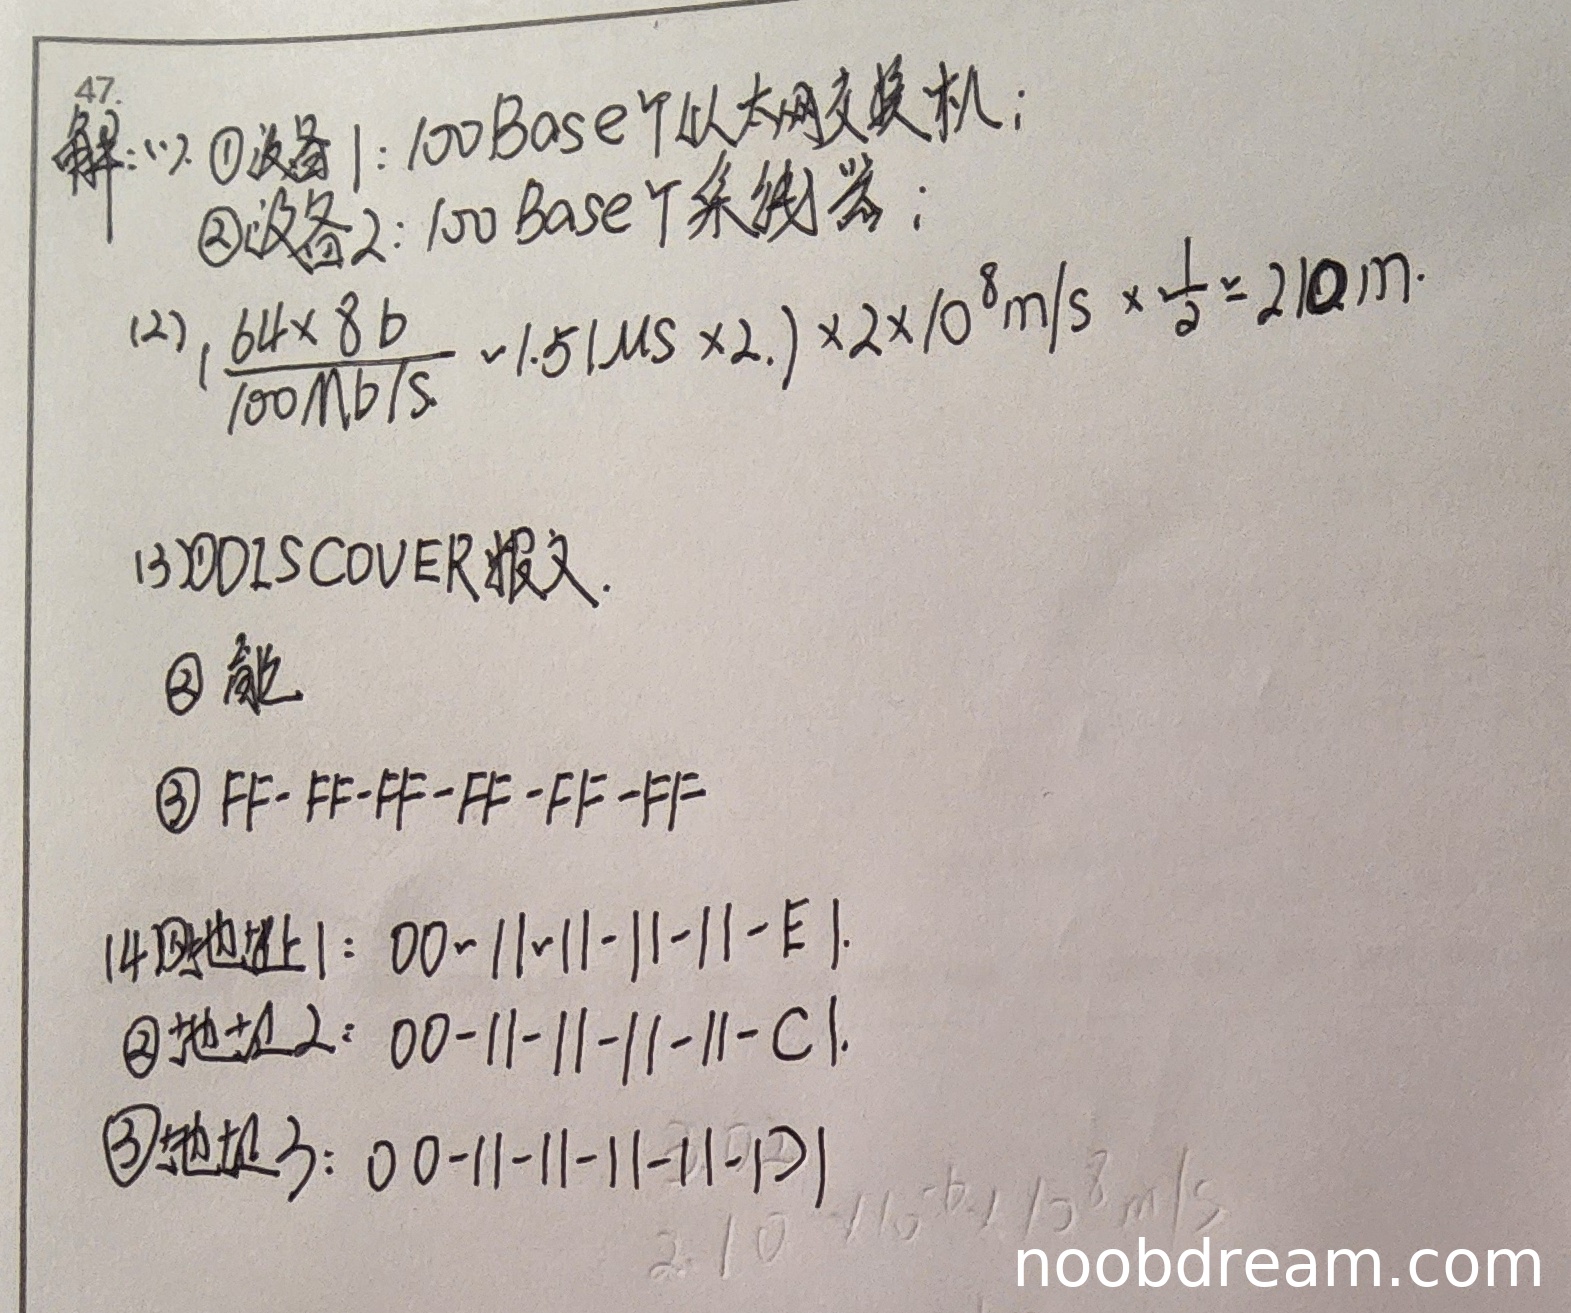 47.
解:(1). ①设备1: 100BaseT以太网交换机;
②设备2: 100BaseT集线器;
(2), (64×8b/100Mb/s - 1.51μs×2.)×2×10⁸m/s × 1/2 = 210m.
(3)①DISCOVER报文.
② 能
③ FF-FF-FF-FF-FF-FF
(4)①地址1: 00-11-11-11-11-E1.
②地址2: 00-11-11-11-11-C1.
③地址3: 00-11-11-11-11-D1
noobdream.com